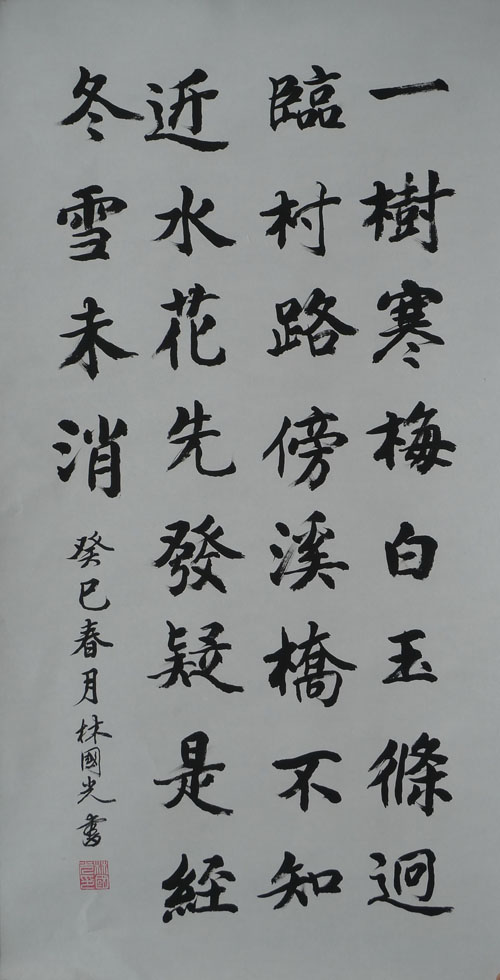 一樹寒梅白玉條迥
臨村路傍溪橋不知
近水花先發疑是經
冬雪未消
癸巳春月林國光書